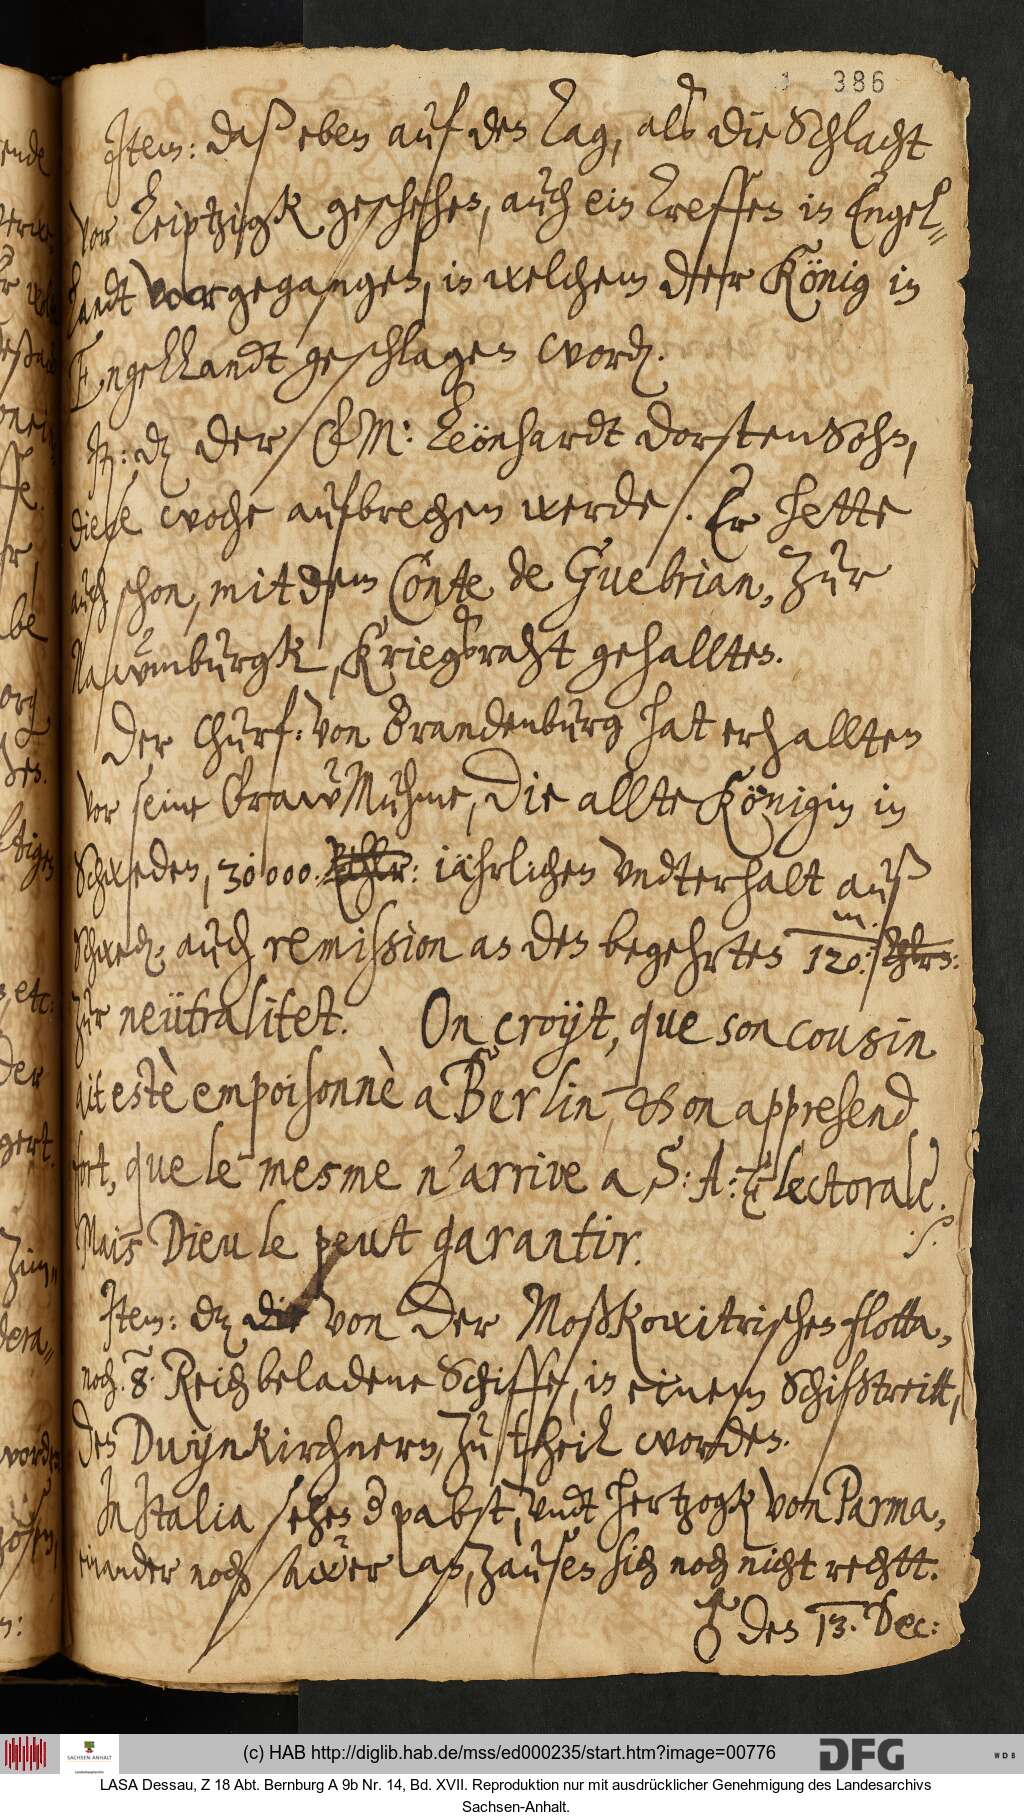 386
Jtem: daß eben auf den Tag, als die Schlacht
vor Leiptzigk geschehen, auch ein treffen in Engel=
landt vorgegangen, in welchem der König in
Engellandt geschlagen word.
It: dz der E M: Leonhardt Dorstensohn,
diese woche aufbrechen werde. Er hette
auch schon, mit dem Conte de Guebrian, zur
Nawmburgk, Kriegsraht gehallten.
Der Churf: von Brandenburg hat erhallten
vor seine FrawMuhme, die allte Königin in
Schweden, 30000 Rthlr: iährlichen vndterhalt auß
Schwed: auch remission an den begehrten 120 m. Thlrn:
zur neütralitet. On croyt, que son cousin
ait estè empoisonnè a Berlin, & on apprehend
fort, que le mesme n'arrive a S: A: Electorale.
Mais Dieu le peut garantir. ./.
Jtem: dz die von der Moßkowitrischen flotta,
noch 8 Reich beladene Schiffe, in einem Schifstreitt,
den Duynkirchnern, zu theil worden.
In Jtalia sehen der pabst, vndt hertzogk von Parma,
einander noch sawer an, zausen sich noch nicht rechtt.
♂ den 13. Dec:
(c) HAB http://diglib.hab.de/mss/ed000235/start.htm?image=00776
DFG
WDB
SACHSEN-ANHALT
LASA Dessau, Z 18 Abt. Bernburg A 9b Nr. 14, Bd. XVII. Reproduktion nur mit ausdrücklicher Genehmigung des Landesarchivs
Sachsen-Anhalt.